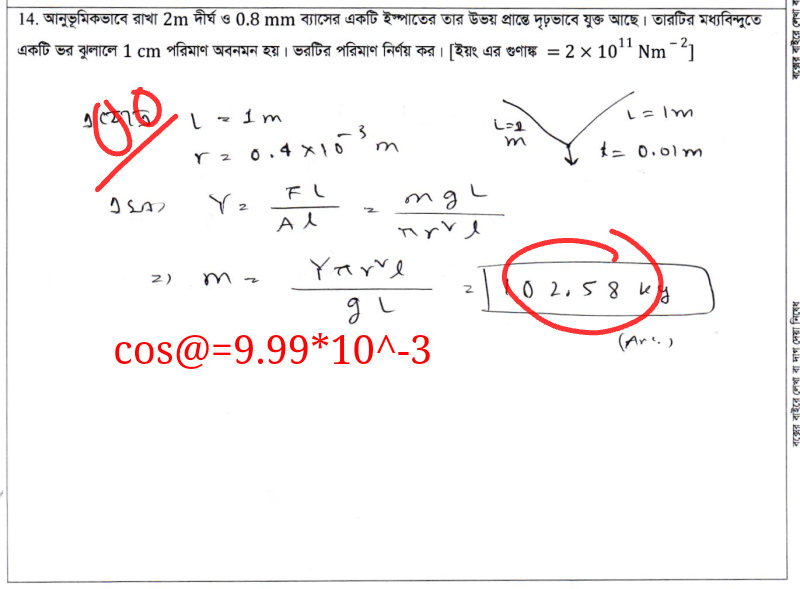 14. আনুভূমিকভাবে রাখা 2m দীর্ঘ ও 0.8 mm ব্যাসের একটি ইস্পাতের তার উভয় প্রান্তে দৃঢ়ভাবে যুক্ত আছে। তারটির মধ্যবিন্দুতে
একটি ভর ঝুলালে 1 cm পরিমাণ অবনমন হয়। ভরটির পরিমাণ নির্ণয় কর। [ইয়ং এর গুণাঙ্ক = 2 × 10^11 Nm^-2]
L = 1 m
r = 0.4 × 10^-3 m
L = 1m
l = 0.01m
Y = FL / Al = mgL / πr²l
=) m = Yπr²l / gL = 102.58 kg
(Ans.)
cos@=9.99*10^-3